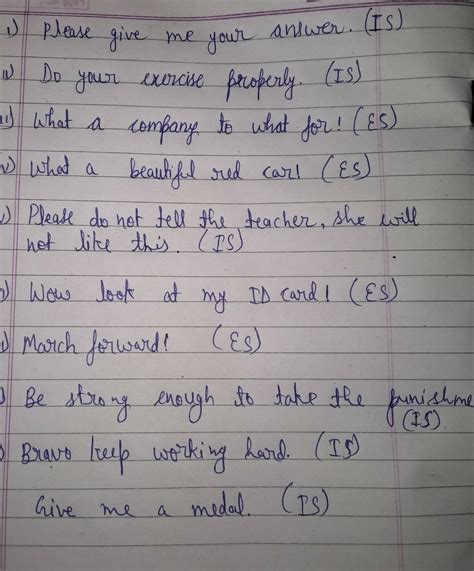 i) Please give me your answer. (IS)
ii) Do your exercise properly. (IS)
ii) What a company to what for! (ES)
v) What a beautiful red car! (ES)
) Please do not tell the teacher, she will
not like this. (IS)
) Wow look at my ID card! (ES)
) March forward! (ES)
) Be strong enough to take the punishme
(IS)
) Bravo keep working hard. (IS)
Give me a medal. (IS)